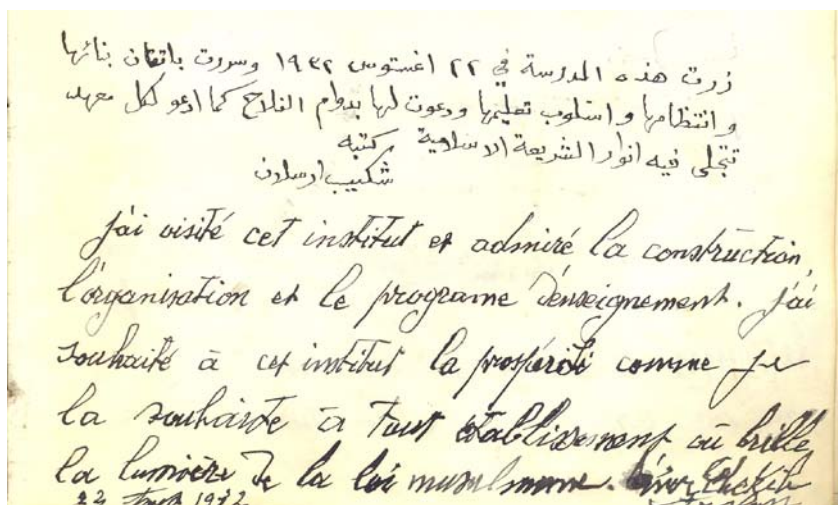 زرت هذه المدرسة في ٢٢ اغستوس ١٩٣٢ وسررت باتقان بنائها
وانتظامها واسلوب تعليمها ودعوت لها بدوام الفلاح كما ادعو لكل معهد
تتجلى فيه انوار الشريعة الاسلامية كتبه
شكيب ارسلان
j'ai visité cet institut et admiré la construction,
l'organisation et le programe d'enseignement. j'ai
souhaité à cet institut la prospérité comme je
la souhaite à tout établissement où brille
la lumière de la loi musulmane. Emir Chekib
22 1932 Arslan